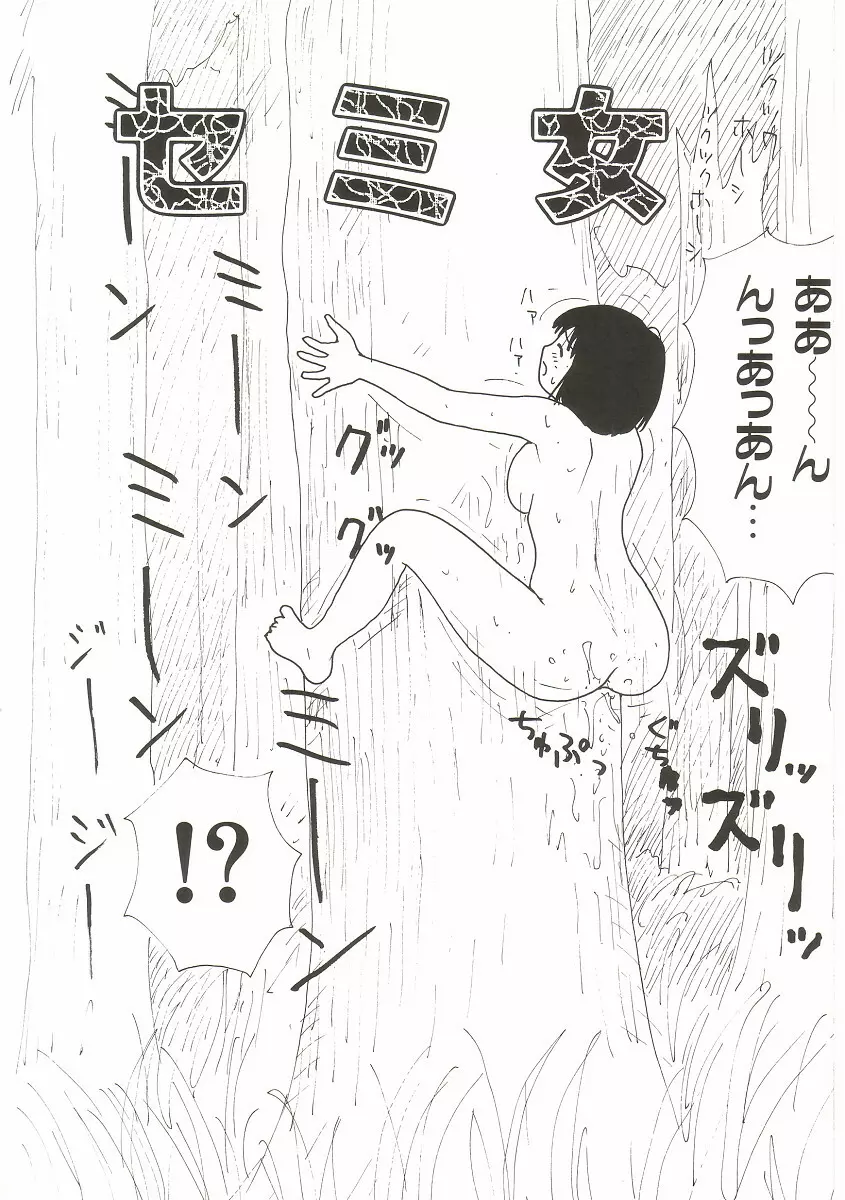 セミ女
ツクツク
ホーシ
ツクツクホーシ
ああ〜〜〜ん
んっあっあん…
ハァ
ハァ
グッ
グッ
ミーン
ミーン
ミーンミーン
ミーン
ジージー
ちゅぷっ
ぐちゅっ
ズリッ
ズリッ
!?